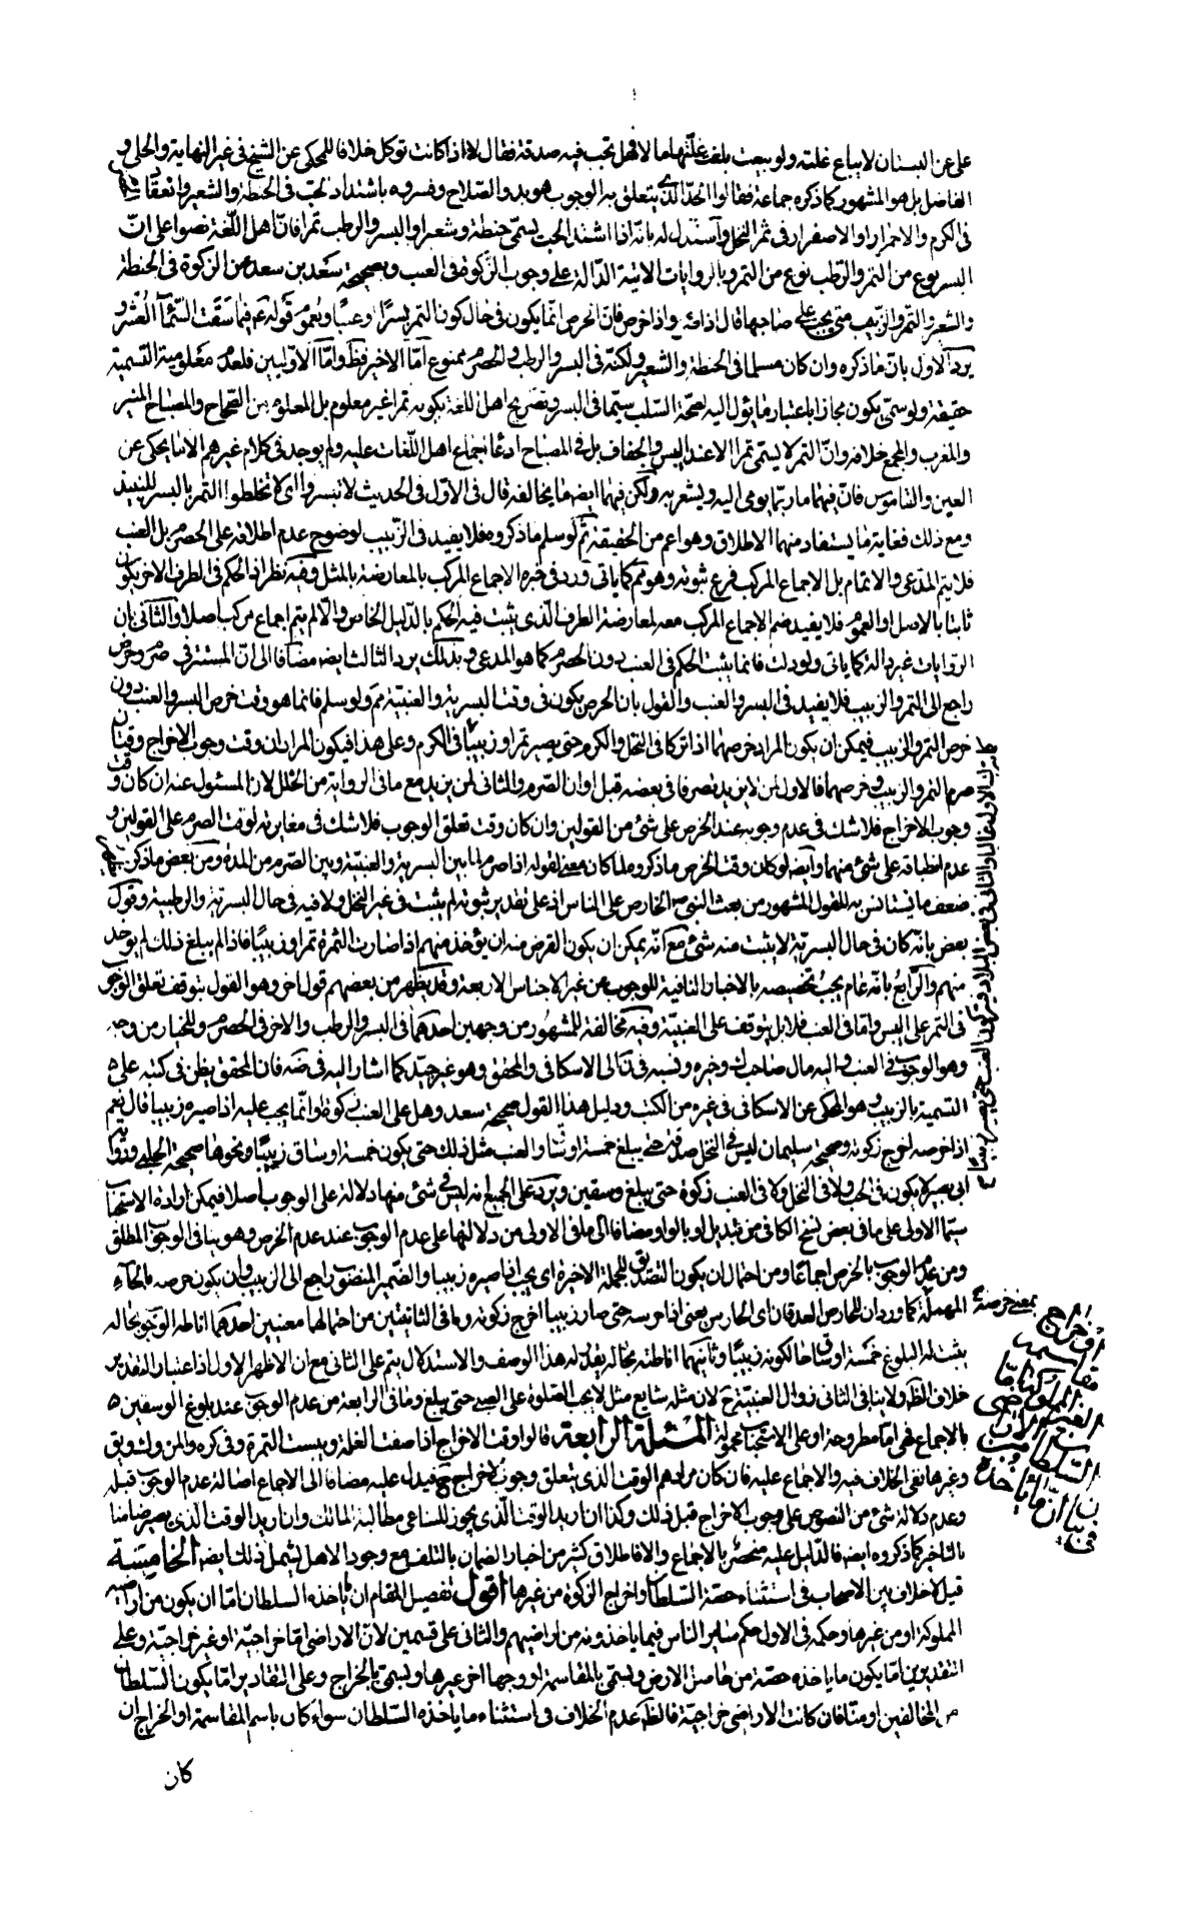 على عن البستان لا يباع غلته ولو بيعت بلغت غلتها مالا فهل تجب فيه صدقة فقال لا اذا كانت توكل خلافا للمحكى عن الشيخ فى غير النهاية والحلى و
الفاضل بل هو المشهور كما ذكره جماعة فقالوا الحد الذى يتعلق به الوجوب هو بدو الصلاح وفسروه باشتداد الحب فى الحنطة والشعير وانعقاد
فى الكرم والاحمرار او الاصفرار فى ثمر النخل واستدل له بانه اذا اشتد الحب يسمى حنطة وشعيرا والبسر والرطب تمرا فان اهل اللغة نصوا على ان
البسر نوع من التمر والرطب نوع من التمر وبالروايات الاتية الدالة على وجوب الزكوة فى العنب وبصحيحة سعد بن سعد عن الزكوة فى الحنطة
والشعير والتمر والزبيب متى يجب على صاحبها قال اذا صرم واذا خرص فان الخرص انما يكون فى حال كون التمر بسرا او عنبا وبعموم قوله ع فيما سقت السماء العشر و
يرد الاول بان ما ذكره وان كان مسلما فى الحنطة والشعير ولكنه فى البسر والرطب والحصرم ممنوع اما الاخير فظ واما الاوليين فلعدم معلومية التسمية
حقيقة ولو سمى يكون مجازا باعتبار ما يؤل اليه لصحة السلب سيما فى البسر وتصريح اهل اللغة بكونه تمرا غير معلوم بل المعلوم من الصحاح والمصباح المنير
والمغرب والمجمع خلافه وان التمر لا يسمى تمرا الا عند اليبس والجفاف بل فى المصباح ادعا اجماع اهل اللغات عليه ولم يوجد فى كلام غيرهم الا ما يحكى عن
العين والقاموس فان فيهما ما ربما يومى اليه ويشعر به ولكن فيهما ايضا ما يخالفه قال فى الاول فى الحديث لا تبسروا اى لا تخلطوا التمر بالبسر للنبيذ
ومع ذلك فغاية ما يستفاد منهما الاطلاق وهو اعم من الحقيقة ثم لو سلم ما ذكروه فلا يفيد فى الزبيب لوضوح عدم اطلاقه على الحصرم بل العنب
فلا يتم المدعى والاتمام بل الاجماع المركب فرع ثبوته وهو مم كما ياتى ورد فى خيره الاجماع المركب بالمعارضة بالمثل وفيه نظر اذ الحكم فى الطرف الاخر يكون
ثابتا بالاصل او العموم فلا يفيد ضم الاجماع المركب معه لمعارضة الطرف الذى يثبت فيه الحكم بالدليل الخاص والا لم يتم اجماع مركب اصلا والثانى بان
الروايات غير دالة كما ياتى ولو دلت فانما يثبت الحكم فى العنب دون الحصرم كما هو المدعى وبذلك يرد الثالث ايضا مضافا الى ان المستتر فى صرم وخرص
راجع الى التمر والزبيب فلا يفيد فى البسر والعنب والقول بان الخرص يكون فى وقت البسرية والعنبية مم ولو سلم فانما هو وقت خرص البسر والعنب دون
خرص التمر والزبيب فيمكن ان يكون المراد خرصهما اذا تركا فى النخل والكرم حتى يصير تمرا وزبيبا فى الكرم وعلى هذا فيكون المراد ان وقت وجوب الاخراج وقتان
صرم التمر والزبيب وخرصهما فالاول لمن لا يريد تصرفا فى بعضه قبل اوان الصرم والثانى لمن يريد مع ما فى الرواية من الخلل لان المسئول عنه ان كان وقت
وجوب الاخراج فلا شك فى عدم وجوبه عند الخرص على شئ من القولين وان كان وقت تعلق الوجوب فلا شك فى مغايرته لوقت الصرم على القولين و
عدم انطباقه على شئ منهما وايضا لو كان وقت الخرص ما ذكروه لما كان معنى لقوله اذا صرم لما بين البسرية والعنبية وبين الصرم من المدة ومن بعض ما ذكر يظهر
ضعف ما يستانس به للقول المشهور من بعث النبى ص الخارص على الناس اذ على تقدير ثبوته لم يثبت فى غير النخل ولا فيه فى حال البسرية والرطبية وقول
بعض بانه كان فى حال البسرية لا يثبت منه شئ مع انه يمكن ان يكون الغرض منه ان يؤخذ منهم اذا صارت الثمرة تمرا وزبيبا فاذا لم يبلغ ذلك لم يوخذ
منهم والرابع بانه عام يجب تخصيصه بالاخبار النافية للوجوب عن غير الاجناس الاربعة وقد يظهر من بعضهم قول اخر وهو القول بتوقف تعلق الوجوب
فى التمر على اليبس واما فى العنب فلا بل يتوقف على العنبية وفيه مخالفة للمشهور من وجهين احدهما فى البسر والرطب والاخر فى الحصرم وللمختار من وجه
وهو الوجوب فى العنب واليه مال صاحب ك وخيره ونسبه فى ك الى الاسكافى والمحقق وهو غير جيد كما اشار اليه فى ضه فان المحقق يظن فى كتبه على
التسمية بالزبيب وهو المحكى عن الاسكافى فى غيره من الكتب ودليل هذا القول صحيحة سعد وهل على العنب زكوة او انما يجب عليه اذا صيره زبيبا قال نعم
اذا خرصه اخرج زكوته وصحيحة سليمان ليس فى النخل صدقة حتى يبلغ خمسة اوساق والعنب مثل ذلك حتى يكون خمسة اوساق زبيبا ونحوها صحيحة الحلبى ورواية
ابى بصير لا يكون فى الحب ولا فى النخل ولا فى العنب زكوة حتى يبلغ وسقين ويرد على الجميع انه ليس فى شئ منها دلالة على الوجوب اصلا فيمكن ارادة الاستحباب
سيما الاولى على ما فى بعض نسخ الكافى من تبديل او بالواو مضافا الى ما فى الاولى من دلالتها على عدم الوجوب عند عدم الخرص وهو ينافى الوجوب المطلق
ومن عدم الوجوب بالخرص اجماعا ومن احتمال ان يكون التصديق للجملة الاخيرة اى يجب اذا صيره زبيبا والضمير المنصوب راجع الى الزبيب وان يكون حرصه بالحاء
المهملة كما ورد ان للحارس العذقان اى الحارس يعنى اذا حرسه حتى صار زبيبا اخرج زكوته وما فى الثانيتين من احتمالها معنيين احدهما اناطة الوجوب بحالة
يثبت له البلوغ خمسة اوساق حالكونه زبيبا وثانيهما اناطته بحالة يقدر له هذا الوصف والاستدلال يتم على الثانى مع ان الاظهر الاول اذ اعتبار التقدير
خلاف الظ ولا ينافى الثانى زوال العنبية ح لان مثله شايع مثل لا يجب الصلوة على الصبى حتى يبلغ وما فى الرابعة من عدم الوجوب عند بلوغ الوسقين
بالاجماع فهى اما مطروحة او على الاستحباب محمولة المسئلة الرابعة قالوا وقت الاخراج اذا صفت الغلة ويبست الثمرة وفى كره والمن
وغيرها نفى الخلاف فيه والاجماع عليه فان كان مرادهم الوقت الذى يتعلق وجوب الاخراج ح فيدل عليه مضافا الى الاجماع اصالة عدم الوجوب قبله
وعدم دلالة شئ من النصوص على وجوب الاخراج قبل ذلك وكذا ان اريد الوقت الذى يجوز للساعى مطالبة المالك وان اريد الوقت الذى يصير ضامنا
بالتاخير كما ذكروه ايضا فالدليل عليه منحصر بالاجماع والا فاطلاق كثير من اخبار الضمان بالتلف مع وجود الاهل يشمل ذلك ايضا الخامسة
قيل لا خلاف بين الاصحاب فى استثناء حصة السلطان واخراج الزكوة من غيرها اقول تفصيل المقام ان ما ياخذه السلطان اما ان يكون من اراضيه
المملوكة او من غيرها وحكمه فى الاول حكم ساير الناس فيما ياخذونه من اراضيهم والثانى على قسمين لان الاراضى اما خراجية او غير خراجية وعلى
التقديرين اما يكون ما ياخذه حصة من حاصل الارض ويسمى بالمقاسمة او وجها اخر غيرها ويسمى بالخراج وعلى التقادير اما يكون السلطان
من المخالفين او منا فان كانت الاراضى خراجية فالظ عدم الخلاف فى استثناء ما ياخذه السلطان سواء كان باسم المقاسمة او الخراج ان
كان